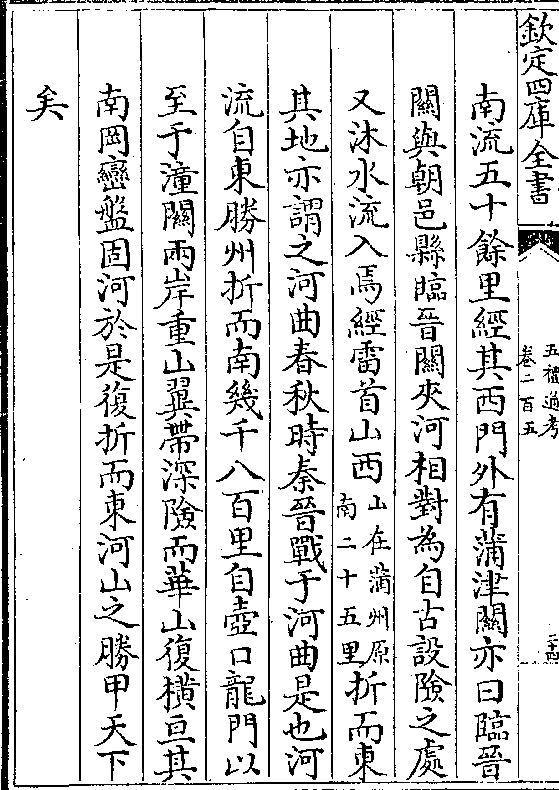 欽定四庫全書
五禮通考
卷二百五
二十四
南流五十餘里經其西門外有蒲津關亦曰臨晉
關與朝邑縣臨晉關夾河相對為自古設險之處
又沐水流入焉經雷首山西山在蒲州原南二十五里折而東
其地亦謂之河曲春秋時秦晉戰于河曲是也河
流自東勝州折而南幾千八百里自壺口龍門以
至于潼關兩岸重山翼帶深險而華山復橫亘其
南岡巒盤固河於是復折而東河山之勝甲天下
矣